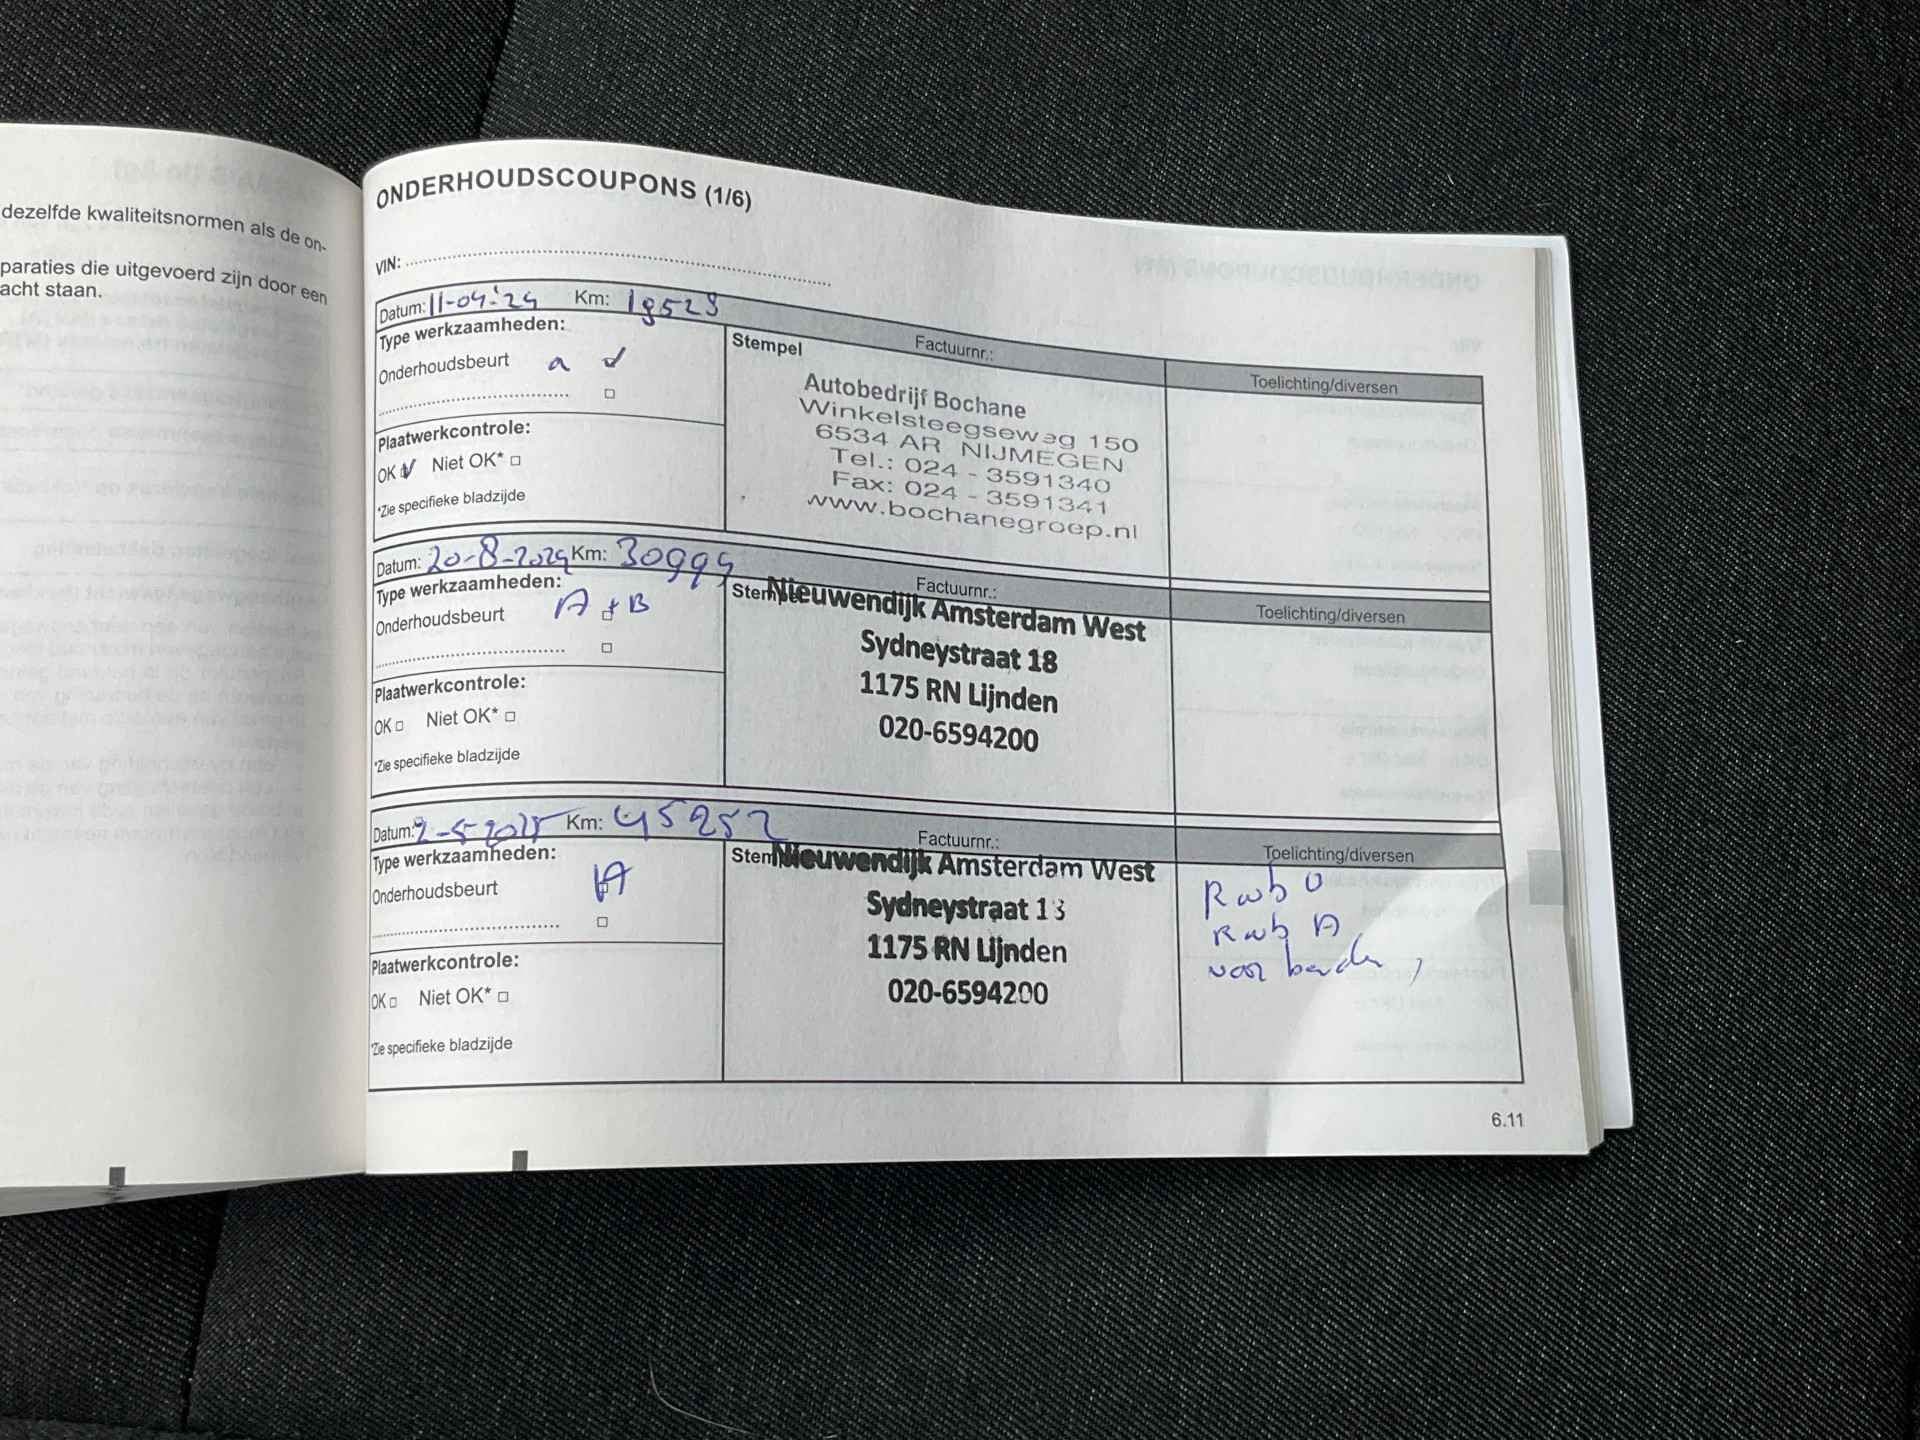 dezelfde kwaliteitsnormen als de on-
paraties die uitgevoerd zijn door een
acht staan.
ONDERHOUDSCOUPONS (1/6)
VIN:
Datum: 11-04-'24 Km: 18529
Factuurnr.:
Toelichting/diversen
Type werkzaamheden:
Stempel
Onderhoudsbeurt a
Autobedrijf Bochane
Winkelsteegseweg 150
6534 AR NIJMEGEN
Tel.: 024 - 3591340
Fax: 024 - 3591341
www.bochanegroep.nl
Plaatwerkcontrole:
OK Niet OK*
*Zie specifieke bladzijde
Datum: 20-8-2024 Km: 30999
Factuurnr.:
Toelichting/diversen
Type werkzaamheden:
Stempel
Onderhoudsbeurt A + B
Nieuwendijk Amsterdam West
Sydneystraat 18
1175 RN Lijnden
020-6594200
Plaatwerkcontrole:
OK Niet OK*
*Zie specifieke bladzijde
Datum: 2-5-2025 Km: 45252
Factuurnr.:
Toelichting/diversen
Type werkzaamheden:
Stem
Onderhoudsbeurt A
Nieuwendijk Amsterdam West
Sydneystraat 18
1175 RN Lijnden
020-6594200
Rwb
Rwb A
voor
Plaatwerkcontrole:
OK Niet OK*
*Zie specifieke bladzijde
6.11